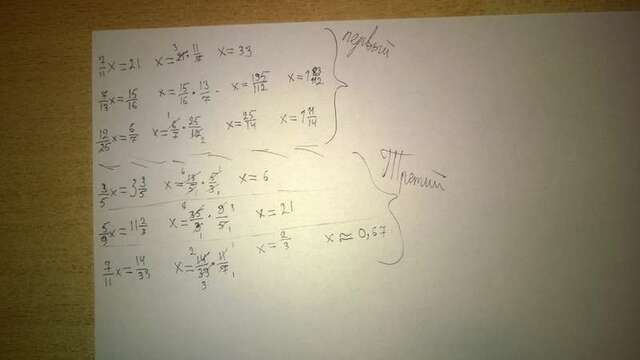 7/11 x = 21 x = 21 · 11/7 x = 33
7/13 x = 15/16 x = 15/16 · 13/7 x = 195/112 x = 1 83/112
12/25 x = 6/7 x = 6/7 · 25/12 x = 25/14 x = 1 11/14
первый
3/5 x = 3 3/5 x = 18/5 · 5/3 x = 6
5/9 x = 11 2/3 x = 35/3 · 9/5 x = 21
7/11 x = 14/33 x = 14/33 · 11/7 x = 2/3 x ≈ 0,67
Третий